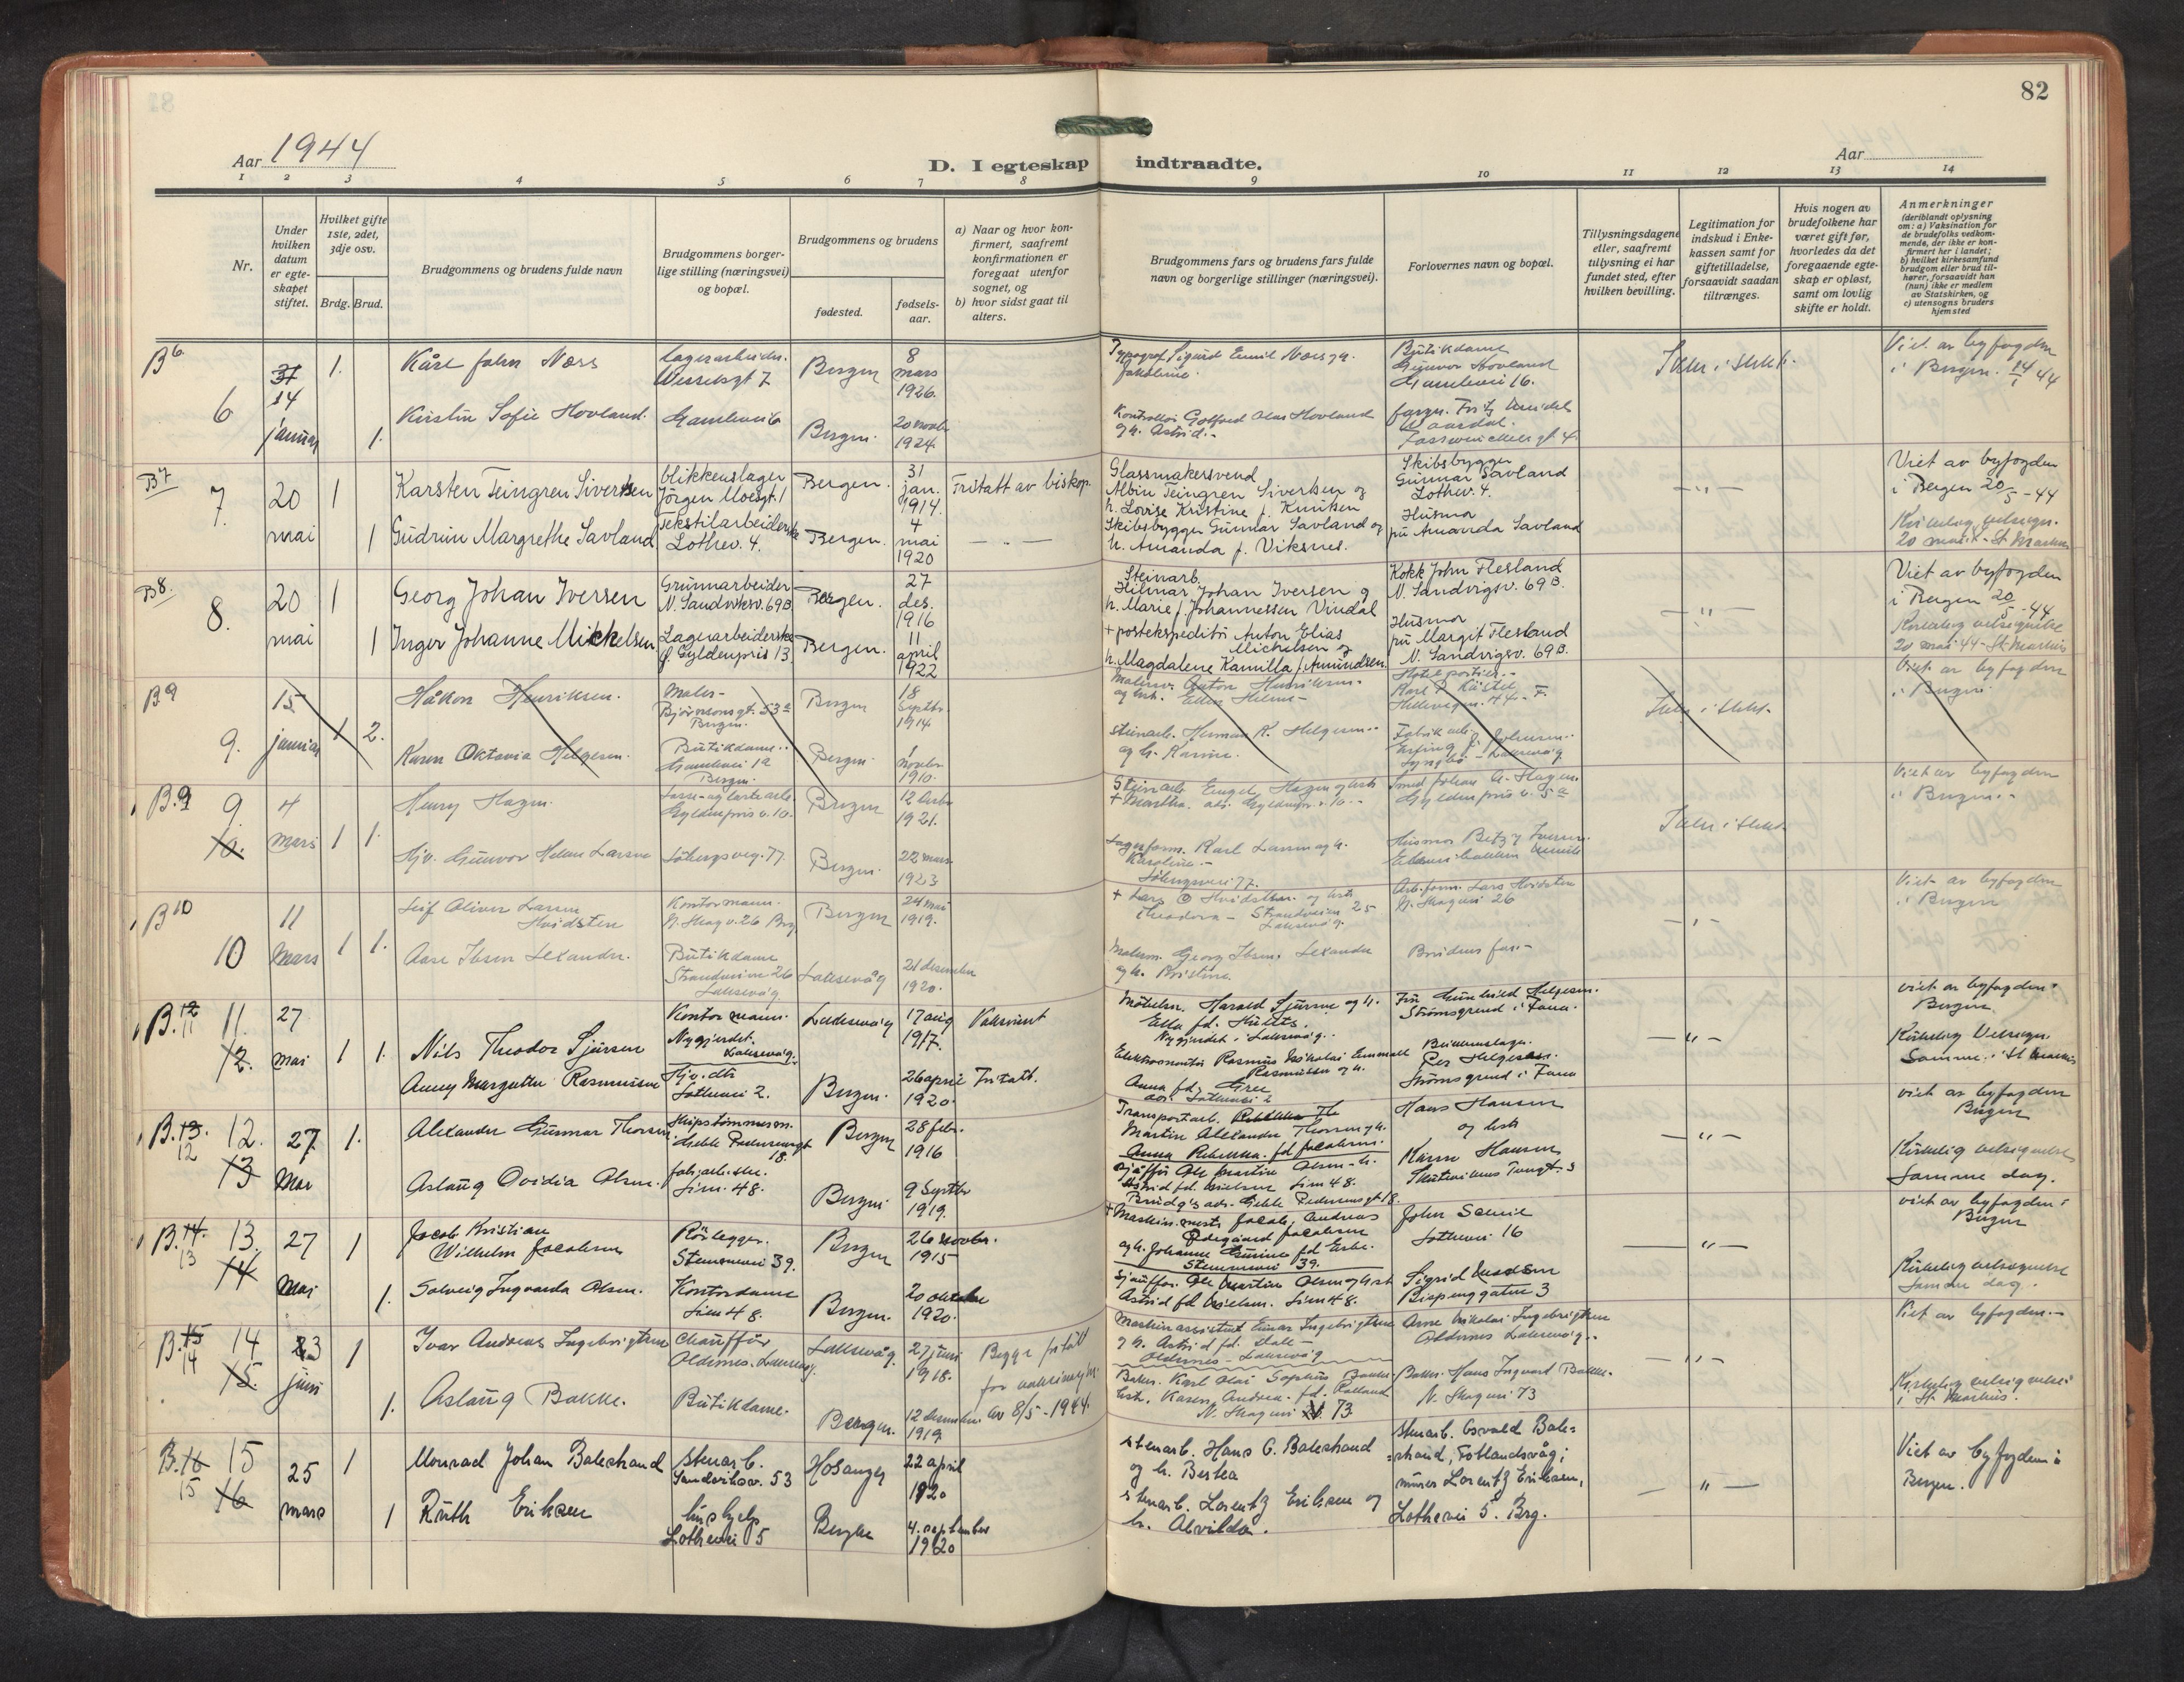 82
Aar 1944
D. I egteskap indtraadte.
Aar
1 2 3 4 5 6 7 8 9 10 11 12 13 14
Nr.
Under hvilken datum er egte-skapet stiftet.
Hvilket gifte 1ste, 2det, 3dje osv.
Brdg. Brud.
Brudgommens og brudens fulde navn
Brudgommens borger-lige stilling (næringsvei) og bopæl.
Brudgommens og brudens
fødested.
fødsels-aar.
a) Naar og hvor kon-firmert, saafremt konfirmationen er foregaat utenfor sognet, og
b) hvor sidst gaat til alters.
Brudgommens fars og brudens fars fulde navn og borgerlige stillinger (næringsvei).
Forlovernes navn og bopæl.
Tillysningsdagene eller, saafremt tillysning ei har fundet sted, efter hvilken bevilling.
Legitimation for indskud i Enke-kassen samt for giftetilladelse, forsaavidt saadan tiltrænges.
Hvis nogen av brudefolkene har været gift før, hvorledes da det foregaaende egte-skap er opløst, samt om lovlig skifte er holdt.
Anmerkninger
(deriblandt oplysning om: a) Vaksination for de brudefolks vedkom-mende, der ikke er kon-firmert her i landet; b) hvilket kirkesamfund brudgom eller brud til-hører, forsaavidt han (hun) ikke er medlem av Statskirken, og c) utensogns bruders hjemsted
B 6
6
14 januar
1.
Kåre John Næss
Lagerarbeider.
Wesselsgt 7
Bergen
8 mars 1926.
Typograf Sigurd Emil Næss og h.
Butikdame
Gunvor Hovland
Gamlevei 16.
Ikke i slekt.
Viet av byfogden
i Bergen. 14/1 44
1.
Kirstin Sofie Hovland.
Gamlevei 6
Bergen.
20 novbr 1924.
Kontrollør Gotfred Olai Hovland
og h. Astrid.-
B 7
7.
20 mai
1
Karsten Teingren Sivertsen
blikkenslager
Jørgen Moesgt. 1
Bergen.
31 jan. 1914.
Fritatt av biskop.
Glassmakersvend
Albin Teingren Sivertsen og
h. Lovise Kristine f. Knutsen
Skibsbygger
Gunnar Savland
Lothev. 4.
— " —
Viet av byfogden
i Bergen 20/5 - 44
1
Gudrun Margrethe Savland
Tekstilarbeiderske
Lothev. 4.
Bergen.
4 mai 1920
— " —
Skibsbygger Gunnar Savland og
h. Amanda f. Viksnes.
Husmor
fru Amanda Savland
Kirkelig velsign.
20 mai - St Markus
B 8.
8.
20 mai
1
Georg Johan Iversen
Grunnarbeider
N. Sandviksv. 69B
Bergen.
27 des. 1916
Steinarb.
Hilmar Johan Iversen og
h. Marie f. Johannessen Vindal
Kokk John Flesland
N. Sandvigsv. 69B.
— " —
Viet av byfogden
i Bergen 20/5 - 44
1
Inger Johanne Mickelsen
Lagerarbeiderske
g. Gyldenpris 13
Bergen.
11 april 1922
+ postekspeditør Anton Elias
Michelsen og
h. Magdalene Kamilla f. Amundsen.
Husmor
fru Margit Flesland
N. Sandvigsv. 69B.
Kirkelig velsignelse
20 mai 44 - St. Markus
B 9
9.
15 januar
1 2.
Håkon Henriksen.
Maler-
Bjørnsonsgt. 53a
Bergen.
Bergen
18 septbr. 1914
Malerm. Anton Henriksen-
Hotelportier.-
Ikke i slekt.
Viet av byfogden
i Bergen.
Karen Oktavia Helgesen.
Butikdame..
Gamlevei 1a
Bergen.
Bergen.
1 novbr 1910.
Steinarb. Herman K. Helgesen..
og h. Karine.
B.9
9
4 mars
1 1.
Henry Hagen.
Gyldenpris v. 10.
Bergen
1921.
Steinarb. Engel Hagen og h.
Smed Johan H. Hagen.
Gyldenpris v. 5a
Ikke i slekt
Viet av byfogden
i Bergen.-
Hjv. Gunvor Helene Larsen
Løbergsveg. 77
Bergen.
22 mars 1923
Lagerform. Karl Larsen og h.
Karoline.-
Løbergsvei 77.
B 10
10
11 mars
1 1.
Leif Oliver Larsen
Hvidsten
Kontormann.
Bergen
24 mai 1919.
Theodora - Strandveien 25
Laksevåg.
Arb.form. Lars Hvidsten
— " —
Viet av byfogden
i Bergen
Aase Ibsen Lexander.
Butikdame
Strandveien 26
Laksevåg
Laksevåg
21 desember 1920.
Malerm. Georg Ibsen Lexander
og h. Kristine
Brudens far.-
B. 11
11.
27 mai
1 1.
Nils Theodor Sjursen
Kontormann.
Nygjerdet.
Laksevåg.
Laksevåg
17 aug 1917.
Vaksinert
Harald Sjursen og h.
Nygjerdet i Laksevåg..
Fru Gunhild Helgesen.
Strømsgrend i Fana.
— " —
viet av byfogden
Bergen.
Anny Margrethe Rasmussen
Hj.v. dtr
Lothevei 2.
Bergen.
26 april 1920.
Fritatt.
Elektromontør Rasmus Nikolai Emanuel
Rasmussen og h.
Blikkenslager.
Per Helgesen.
Strømsgrend i Fana
Kirkelig Velsign.
Samme. i St Markus
B. 12
12.
27. Mai
1.
Alexander Gunnar Thorsen
Skipstømmerm.
Bergen
28 febr. 1916
Transportarb.
Martin Alexander Thorsen og h.
Anna Rebekka. fd Jacobsen.
Hans Hansen
og
— " —
viet av byfogden
Bergen
Aslaug Ovidia Olsen.
Lien. 48.
Bergen
9 septbr 1919.
Sjåffør Ole Martin Olsen - h.
Astrid fd. Nielsen Lien 48.
Karen Hansen
Kirkelig velsignelse
samme dag.
B. 13
13.
27 Mai
1
Jacob Kristian
Wilhelm Jacobsen
Rørlegger.
Stemmevei 39.
Bergen
26 novbr. 1915
+ Maskinmester Jacob Andreas
Ødegaard Jacobsen
Stemmevei 39.
John
Lothevei 16
— " —
viet av byfogden i
Bergen
1.
Solveig Ingvarda Olsen.
Kontordame
Lien 48.
Bergen.
20 oktober 1920.
Sjåuffør. Ole Martin Olsen og h.
Astrid fd Nielsen. Lien 48.
Sigrid
Bispenggaten 3
Kirkelig velsignelse
samme dag.
B. 14
14
23 juni
1
Ivar Andreas Ingebrigtsen
Chauffør
Oldernes. Laksevåg.
Laksevåg.
27 juni 1918.
Begge fritatt
av 8/5 - 1944.
Maskinassistent Einar Ingebrigtsen
og h. Astrid fd.
Oldernes - Laksevåg
Arne Nikolai Ingebrigtsen
Oldernes Laksevåg..
— " —
Viet av byfogden.-
1.
Aslaug Bakke.
Butikdame.
Bergen.
12 desember 1919
Baker. Karl Olai Sophus Bakke
N. Skagevei 73
Baker. Hans Ingvard Bakke.
N. Skagevei 73
Kirkelig velsignelse
i St. Markus.
B. 15
15
25 mars
1
Monrad Johan Balestrand
stenarb.
Sandviksv. 53
Hosanger
22 april 1920
stenarb. Hans O. Balestrand
og h. Bertea
stenarb. Osvald Bale-
strand, Fotlandsvåg;
murer Lorentz Eriksen,
Lothevei 5. Brg.
— " —
Viet av byfogden i
Bergen.
1
Ruth Eriksen
hushjelp
Lothevei 5
Bergen
4. september 1920
stenarb. Lorentz Eriksen og
h. Alvilda.